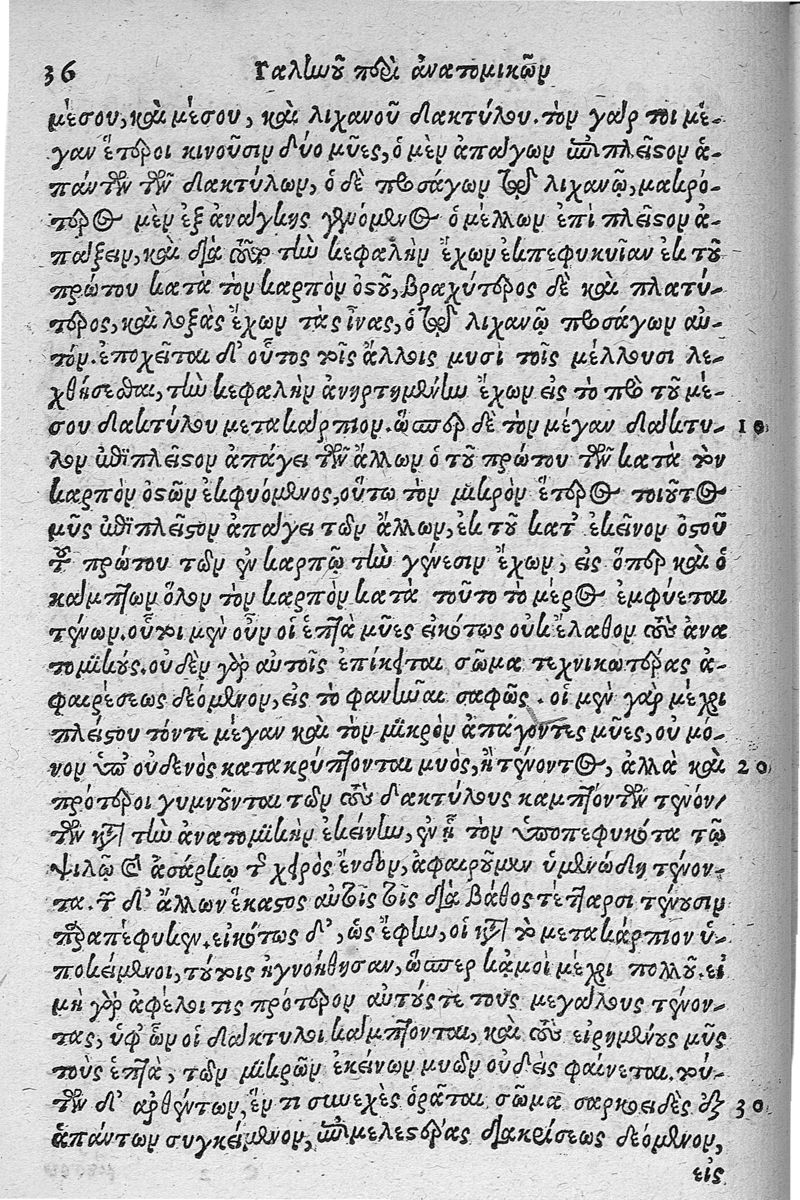 36 Γαληνοῦ περὶ ἀνατομικῶν
μέσου, καὶ μέσου, καὶ λιχανοῦ δακτύλου. τὸν γάρ τοι μέ-
γαν ἕτεροι κινοῦσιν δύο μῦες, ὁ μὲν ἀπάγων ἐπιπλεῖστον ἁ-
πάντων τῶν δακτύλων, ὁ δὲ προσάγων τῷ λιχανῷ, μακρό-
τερος μὲν ἐξ ἀνάγκης γενόμενος ὁ μέλλων ἐπὶ πλεῖστον ἀ-
πάξειν, καὶ διὰ τοῦτο τὴν κεφαλὴν ἔχων ἐκπεφυκυῖαν ἐκ τοῦ
πρώτου κατὰ τὸν καρπὸν ὀστοῦ, βραχύτερος δὲ καὶ πλατύ-
τερος, καὶ λοξὰς ἔχων τὰς ἶνας, ὁ τῷ λιχανῷ προσάγων αὐ-
τόν. ἐποχεῖται δ' οὗτος τοῖς ἄλλοις μυσὶ τοῖς μέλλουσι λε-
χθήσεσθαι, τὴν κεφαλὴν ἀνηρτημένην ἔχων εἰς τὸ πρὸ τοῦ μέ-
σου δακτύλου μετακάρπιον. ὥσπερ δὲ τὸν μέγαν δάκτυ- 10
λον ἐπιπλεῖστον ἀπάγει τῶν ἄλλων ὁ τοῦ πρώτου τῶν κατὰ τὸν
καρπὸν ὀστῶν ἐκφυόμενος, οὕτω τὸν μικρὸν ἕτερος τοιοῦτος
μῦς ἐπιπλεῖστον ἀπάγει τῶν ἄλλων, ἐκ τοῦ κατ' ἐκεῖνον ὀστοῦ
τοῦ πρώτου τῶν ἐν καρπῷ τὴν γένεσιν ἔχων, εἰς ὅπερ καὶ ὁ
κάμπτων ὅλον τὸν καρπὸν κατὰ τοῦτο τὸ μέρος ἐμφύεται
τένων. οὗτοι μὲν οὖν οἱ ἑπτὰ μῦες εἰκότως οὐκ ἔλαθον τοὺς ἀνα
τομικούς. οὐδὲν γὰρ αὐτοῖς ἐπίκειται σῶμα τεχνικωτέρας ἀ-
φαιρέσεως δεόμενον, εἰς τὸ φανῆναι σαφῶς. οἱ μὲν γὰρ μέχρι
πλείστου τόν τε μέγαν καὶ τὸν μικρὸν ἀπάγοντες μῦες, οὐ μό-
νον ὑπ' οὐδενὸς κατακρύπτονται μυὸς, ἢ τένοντος, ἀλλὰ καὶ 20
πρότεροι γυμνοῦνται τῶν τοὺς δακτύλους καμπτόντων τενόν-
των κατὰ τὴν ἀνατομικὴν ἐκείνην, ἐν ᾗ τὸν ὑποπεφυκότα τῷ
ψιλῷ καὶ ἀσάρκῳ τῆς χειρὸς ἔνδον, ἀφαιροῦμεν ὑμενώδη τένον-
τα. τῶν δ' ἄλλων ἕκαστος αὐτοῖς τοῖς διὰ βάθος τέτταρσι τένουσιν
παραπέφυκεν. εἰκότως δ', ὡς ἔφην, οἱ κατὰ τὸ μετακάρπιον ὑ-
ποκείμενοι, τούτοις ἠγνοήθησαν, ὥσπερ κἀμοὶ μέχρι πολλοῦ. εἰ
μὴ γὰρ ἀφέλοι τις πρότερον αὐτούς τε τοὺς μεγάλους τένον-
τας, ὑφ' ὧν οἱ δάκτυλοι κάμπτονται, καὶ τοὺς εἰρημένους μῦς
τοὺς ἑπτὰ, τῶν μικρῶν ἐκείνων μυῶν οὐδεὶς φαίνεται. τού-
των δ' ἀρθέντων, ἕν τι συνεχὲς ὁρᾶται σῶμα σαρκοειδὲς ἐξ 30
ἁπάντων συγκείμενον, ἐπιμελεστέρας διακρίσεως δεόμενον,
εἰς